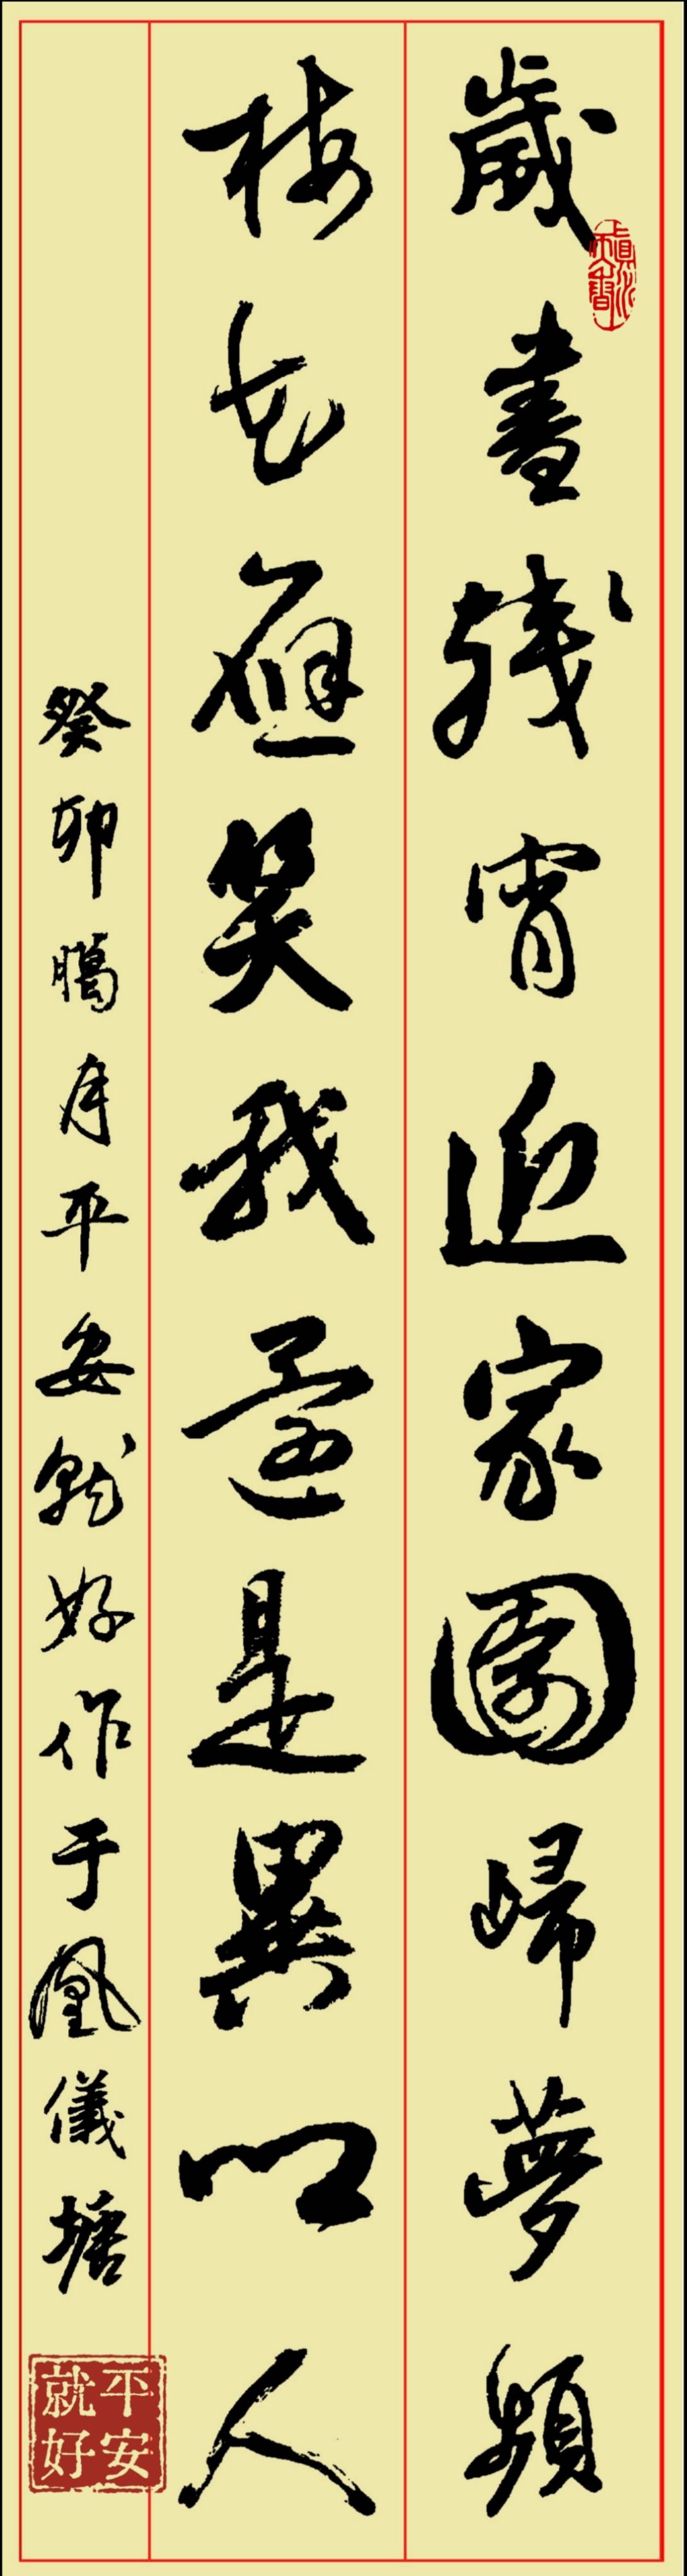 歲盡殘宵近家園歸夢頻
梅花應笑我還是異鄉人
癸卯臈月平安就好作于凰儀塘
平安
就好